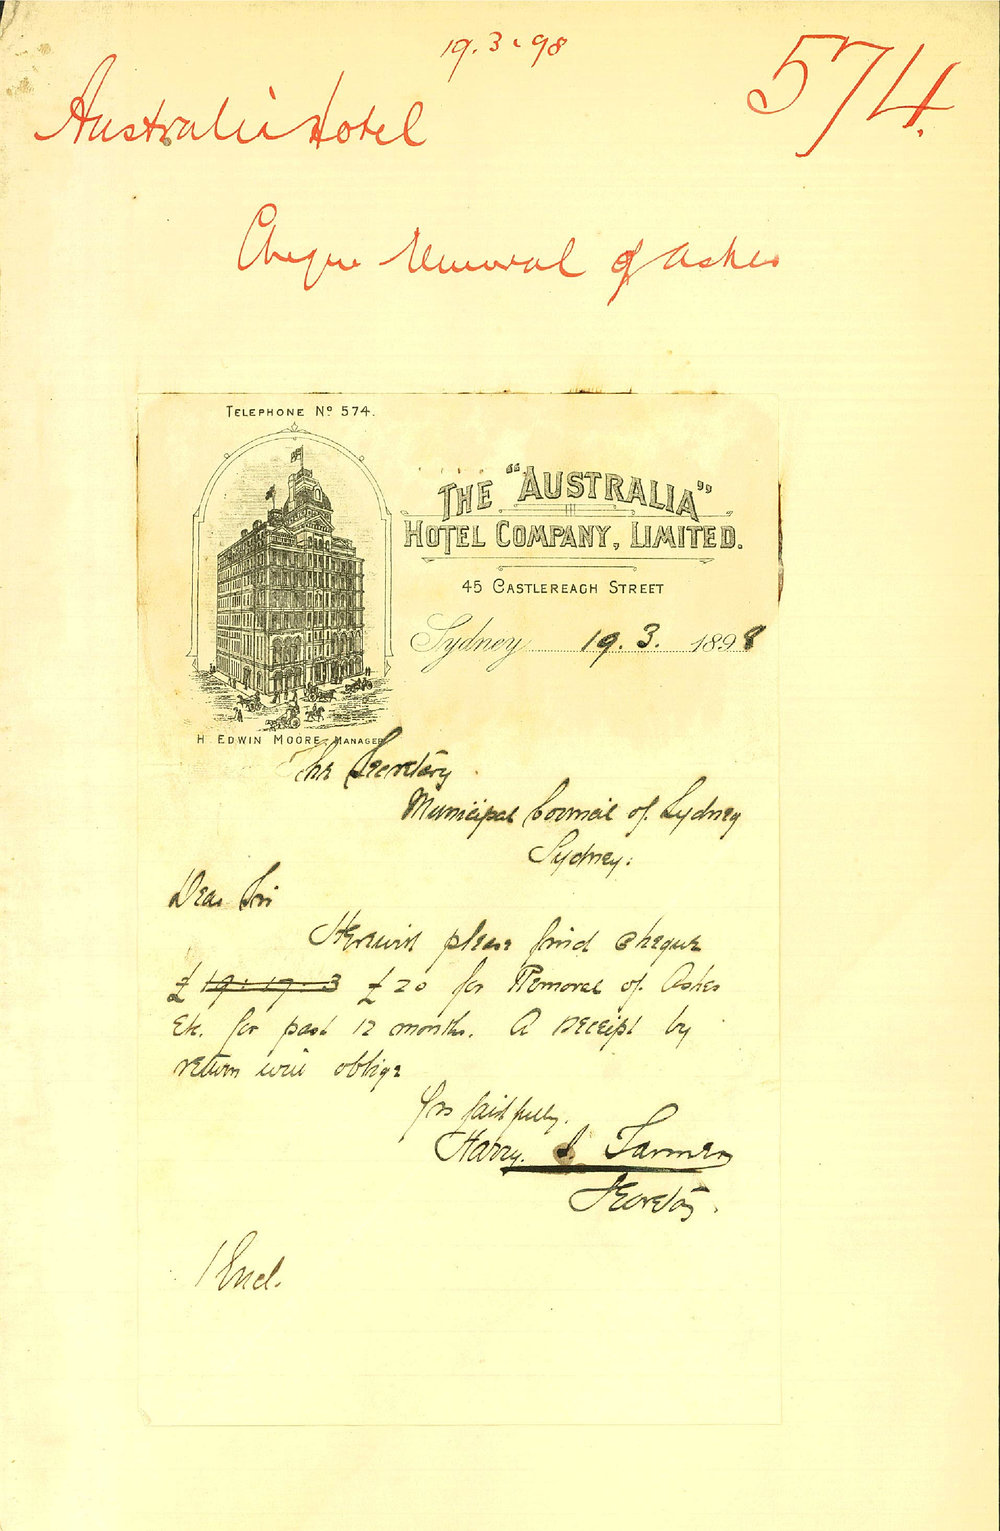 19.3.98
574.
Australia Hotel
Cheque Removal of Ashes
TELEPHONE Nº 574.
THE "AUSTRALIA"
HOTEL COMPANY, LIMITED.
45 CASTLEREAGH STREET
Sydney 19.3. 1898
H. EDWIN MOORE, MANAGER
The Secretary
Municipal Council of Sydney
Sydney.
Dear Sir
Herewith please find cheque
£ 19.17.3 £20 for Removal of Ashes
Etc. for past 12 months. A receipt by
return will oblige
Yrs faithfully.
Harry. I. Farmer
Secretary.
1 Encl.